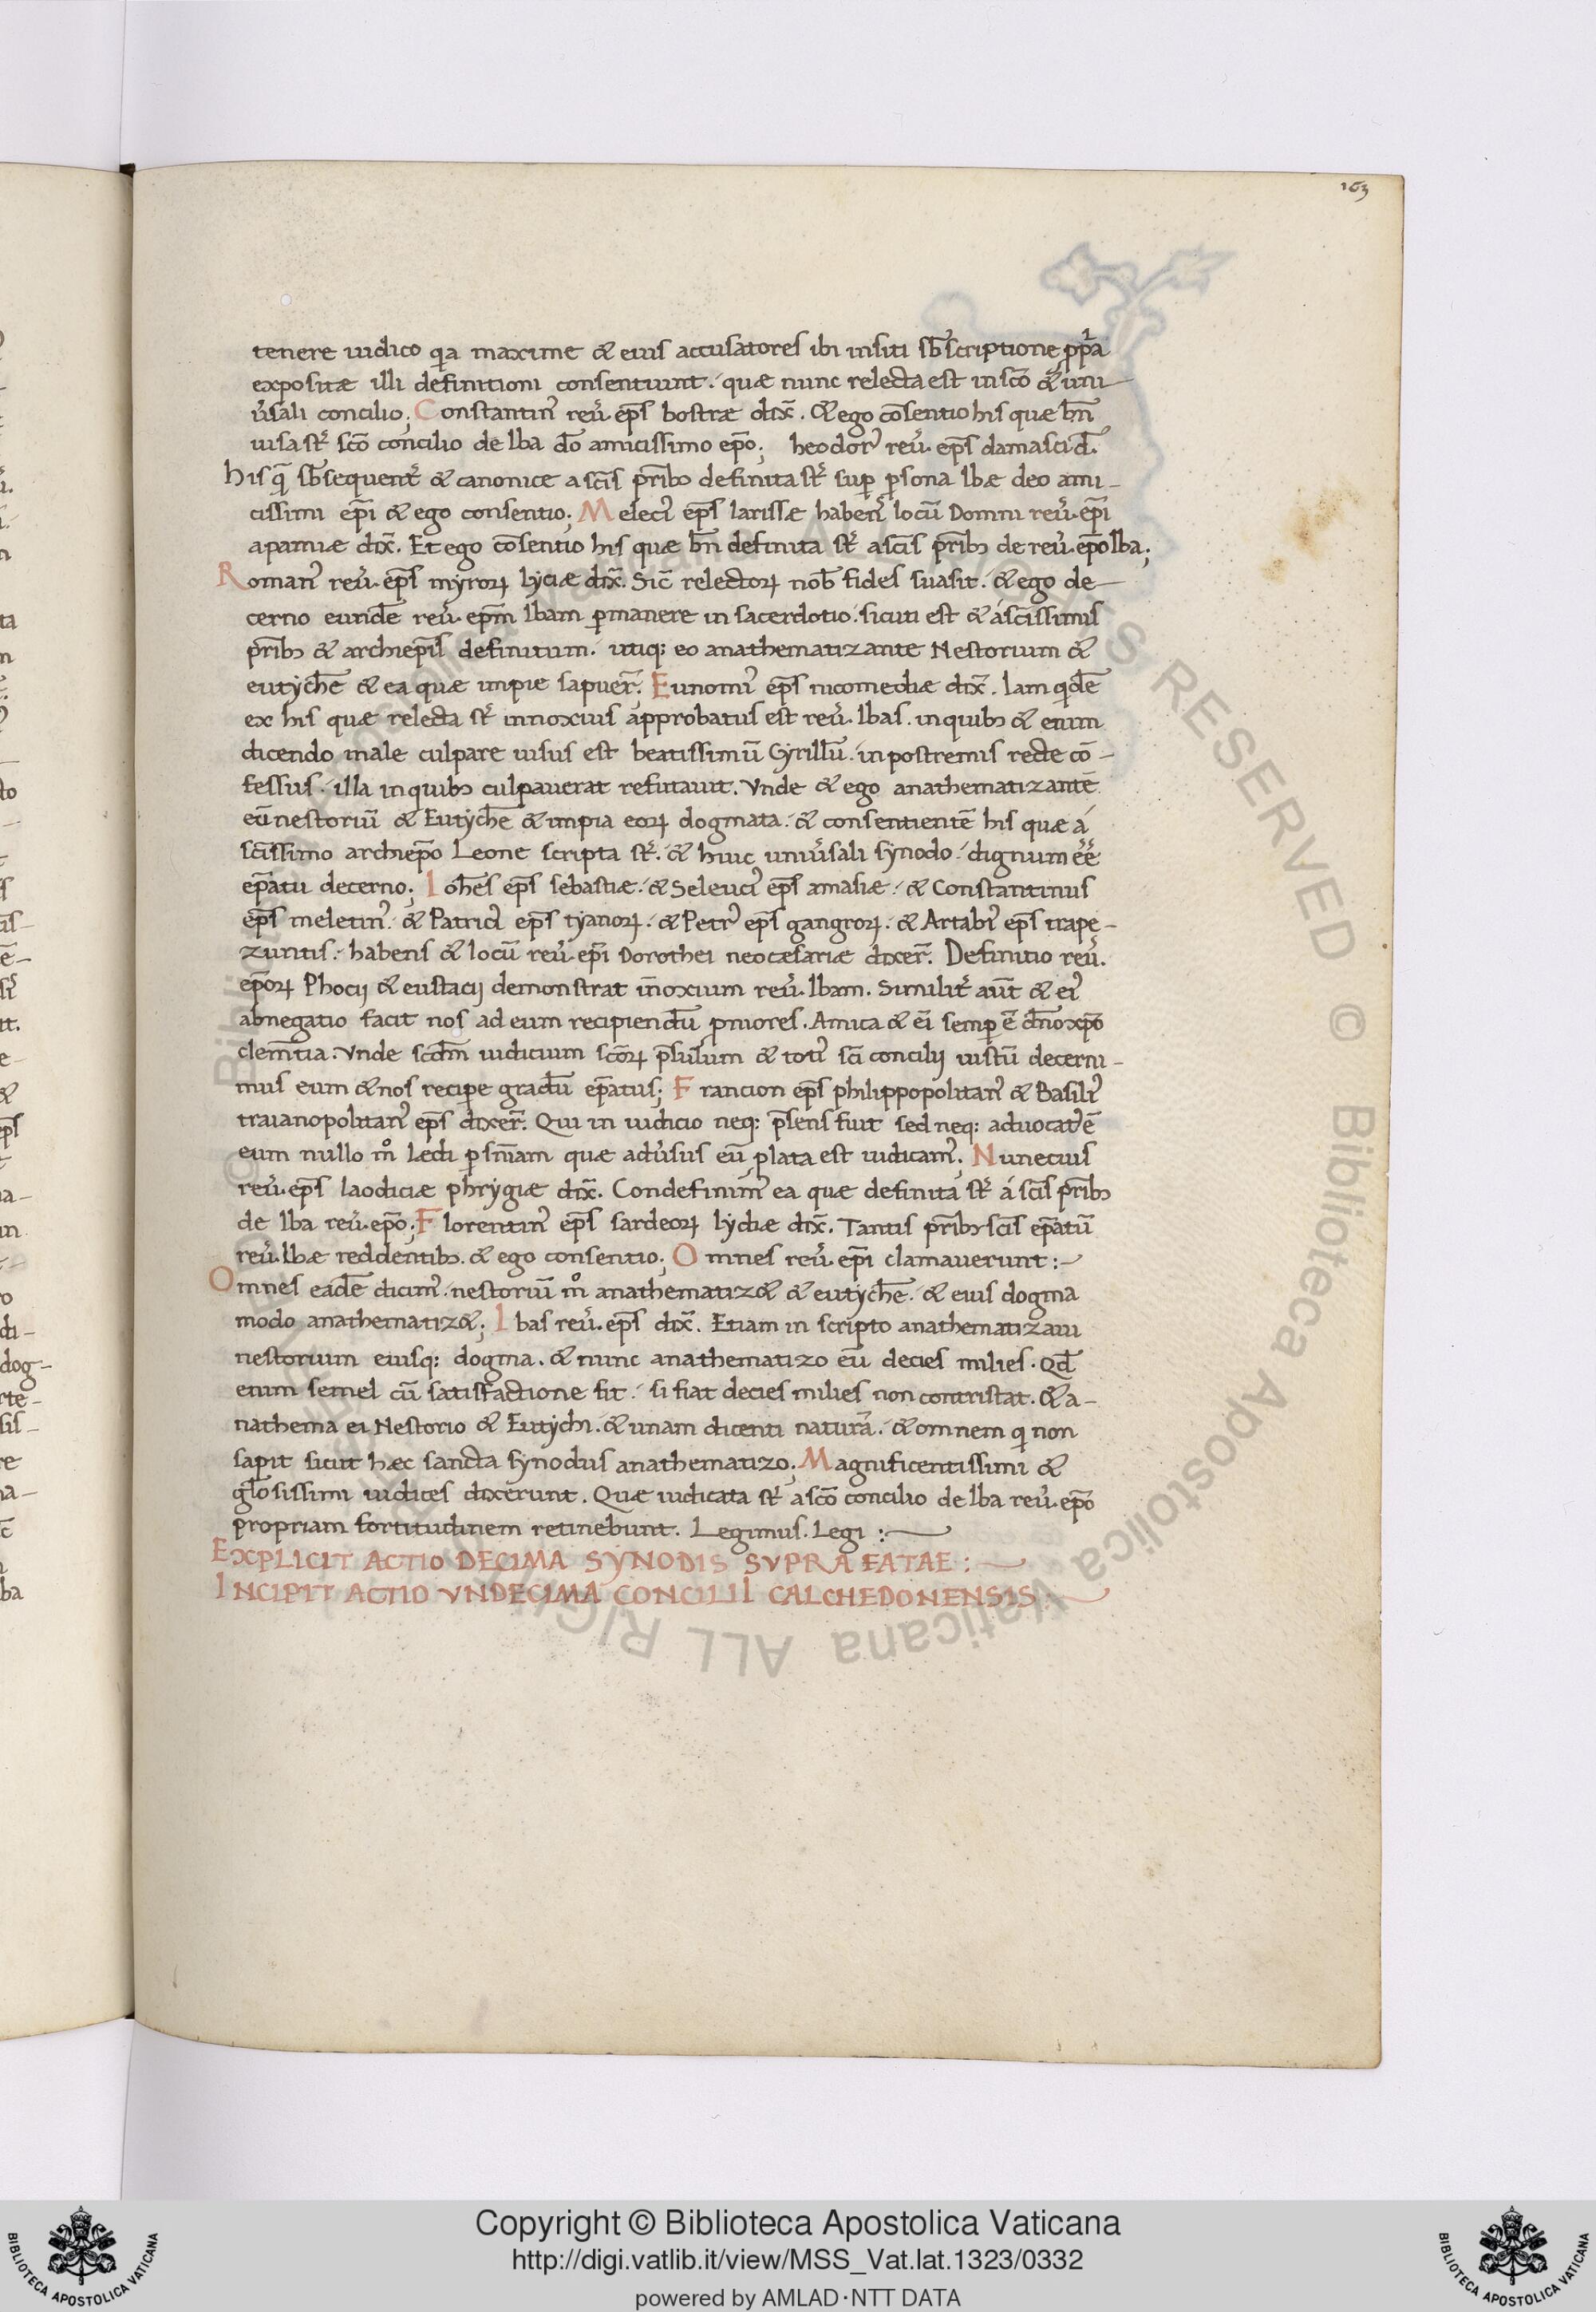 163
tenere iudico q̇a maxime & eius accusatores ibi insiti sb̄scriptione ṗpͥa
expositæ illi definitioni consentiunt. quæ nunc relecta est in sc̄o & uni
u̓sali concilio; Constantin᾽ reu̓. ep̄s bostræ dix̄. & ego cōsentio his quæ bn̄
uisa st̄ sc̄o concilio de Iba dō amicissimo ep̄o; heodor᾽ reu̓. ep̄s damasci d̄.
His q̄ sb̄sequent᾽ & canonice a sc̄is pr̄ib; definita st̄ sup̱ p̱sona Ibæ deo ami-
cissimi ep̄i & ego consentio; Meleci᾽ ep̄s larissæ haben᾽ locū Domni reu̓. ep̄i
apamiæ dix̄. Et ego cōsentio his quæ bn̄ definita st̄ a sc̄is pr̄ib; de reu̓. ep̄o Iba;
Roman᾽ reu̓. ep̄s myroꝝ lyciæ dix̄. Sic̄ relectoꝝ nob̄ fides suasit. & ego de-
cerno eundē reu̓. ep̄m Ibam p̱manere in sacerdotio. sicuti est & á sc̄issimis
pr̄ib; & archiep̄is definitum. utiq; eo anathematizante Nestorium &
eutychē & ea quæ impie sapuer̄. Eunomi᾽ ep̄s nicomediæ dix̄. Iam q̇dē
ex his quæ relecta st̄ innoxius approbatus est reu̓. Ibas. in quib; & enim
dicendo male culpare uisus est beatissimū Cyrillū. in postremis recte cō-
fessus. illa in quib; culpauerat refutauit. Vnde & ego anathematizantē
eū nestoriū & Eutychē & impia eoꝝ dogmata. & consentientē his quæ á
sc̄issimo archiep̄o Leone scripta st̄. & huic uniu̓sali synodo. dignum ēē
ep̄atu decerno; Ioh̄es ep̄s sebastiæ. & Seleuci᾽ ep̄s amasiæ. & Constantinus
ep̄s meletin᾽. & Patrici᾽ ep̄s tyanoꝝ. & Petr᾽ ep̄s gangroꝝ. & Artabi᾽ ep̄s trape-
zuntis. habens & locū reu̓. ep̄i Dorothei neocæsariæ dixer̄. Definitio reu̓.
ep̄oꝝ Phocij & eustacij demonstrat in̄oxium reu̓. Ibam. Similit᾽ aūt & ei᾽
abnegatio facit nos ad eum recipiendū p̱niores. Amica & ei᾽ semp̱ ē dn̄o xp̄o
clem̄tia. Vnde scd̄m iudicium sc̄oꝝ p̄sulum & toti᾽ sc̄i concilij iustū decerni-
mus eum & nos recipe gradū ep̄atus; Francion ep̄s philippopolitan᾽ & Basili᾽
traianopolitan᾽ ep̄s dixer̄. Qui in iudicio neq; p̄sens fuit sed neq; aduocat᾽ ē
eum nullo m̊ lædi p̱ sn̄iam quæ adu̓sus eū ꝓlata est iudicam᾽. Nunecius
reu̓. ep̄s laodiciæ phrygiæ dix̄. Condefinim᾽ ea quæ definita st̄ á sc̄is pr̄ib;
de Iba reu̓. ep̄o; Florentin᾽ ep̄s sardeoꝝ lydiæ dix̄. Tantis pr̄ib; sc̄is ep̄atū
reu̓. Ibæ reddentib;. & ego consentio; Omnes reu̓. ep̄i clamauerunt:~
Omnes eadē dicim᾽. nestoriū m̊ anathematiz& & eutychē. & eius dogma
modo anathematiz&; Ibas reu̓. ep̄s dix̄. Etiam in scripto anathematizaui
nestorium eiusq; dogma. & nunc anathematizo eū decies milies. Qd̄
enim semel cū satisfactione fit. si fiat decies milies non contristat. & a-
nathema ei Nestorio & Eutychi. & unam dicenti naturā. & omnem q̇ non
sapit sicut hæc sancta synodus anathematizo; Magnificentissimi &
gl̄osissimi iudices dixerunt. Quæ iudicata st̄ a sc̄o concilio de Iba reu̓. ep̄o
propriam fortitudinem retinebunt. Legimus. Legi :~
EXPLICIT ACTIO DECIMA SYNODIS SVPRA FATAE :~
INCIPIT ACTIO VNDECIMA CONCILII CALCHEDONENSIS
© Biblioteca Apostolica Vaticana ALL RIGHTS RESERVED
Copyright © Biblioteca Apostolica Vaticana
http://digi.vatlib.it/view/MSS_Vat.lat.1323/0332
powered by AMLAD·NTT DATA
BIBLIOTECA APOSTOLICA VATICANA
BIBLIOTECA APOSTOLICA VATICANA